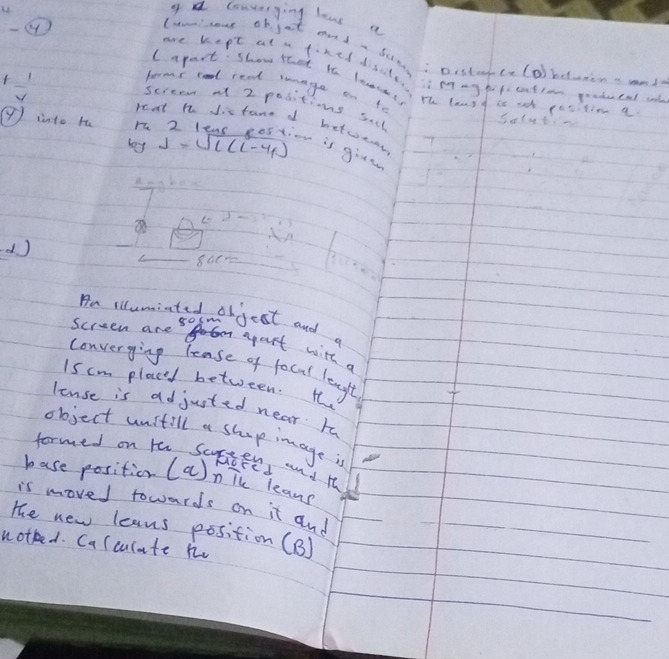 - (4)
+ 1/v
(4) into the
d)
g a converging lens a
luminous object and a screen
are kept at a fixed distance
L apart. Show that the
forms real image on
screen at 2 positions such
that the distance d between
the 2 lens position is given
by d = √L(L-4f)
80cm
An illuminted object and a
screen are 80cm apart with a
converging lense of focal length
15cm placed between. The
lense is adjusted near the
object unitill a shap image is
formed on the screen and the
base position (a) noted
is moved towards on it and
the new leans position (B)
notted. Calculate the
i Distance (D) between a and
ii Magnification produced when
the lens is at position a.
Solution